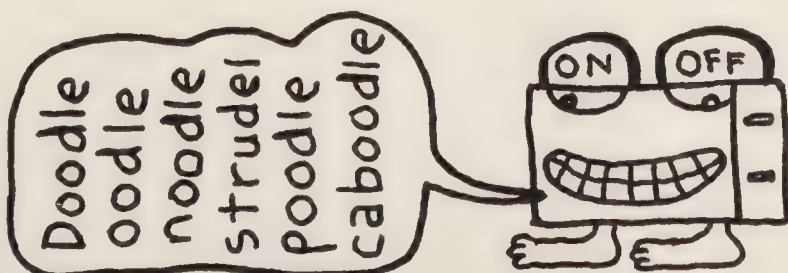 Doodle
oodle
noodle
strudel
poodle
caboodle
ON
OFF